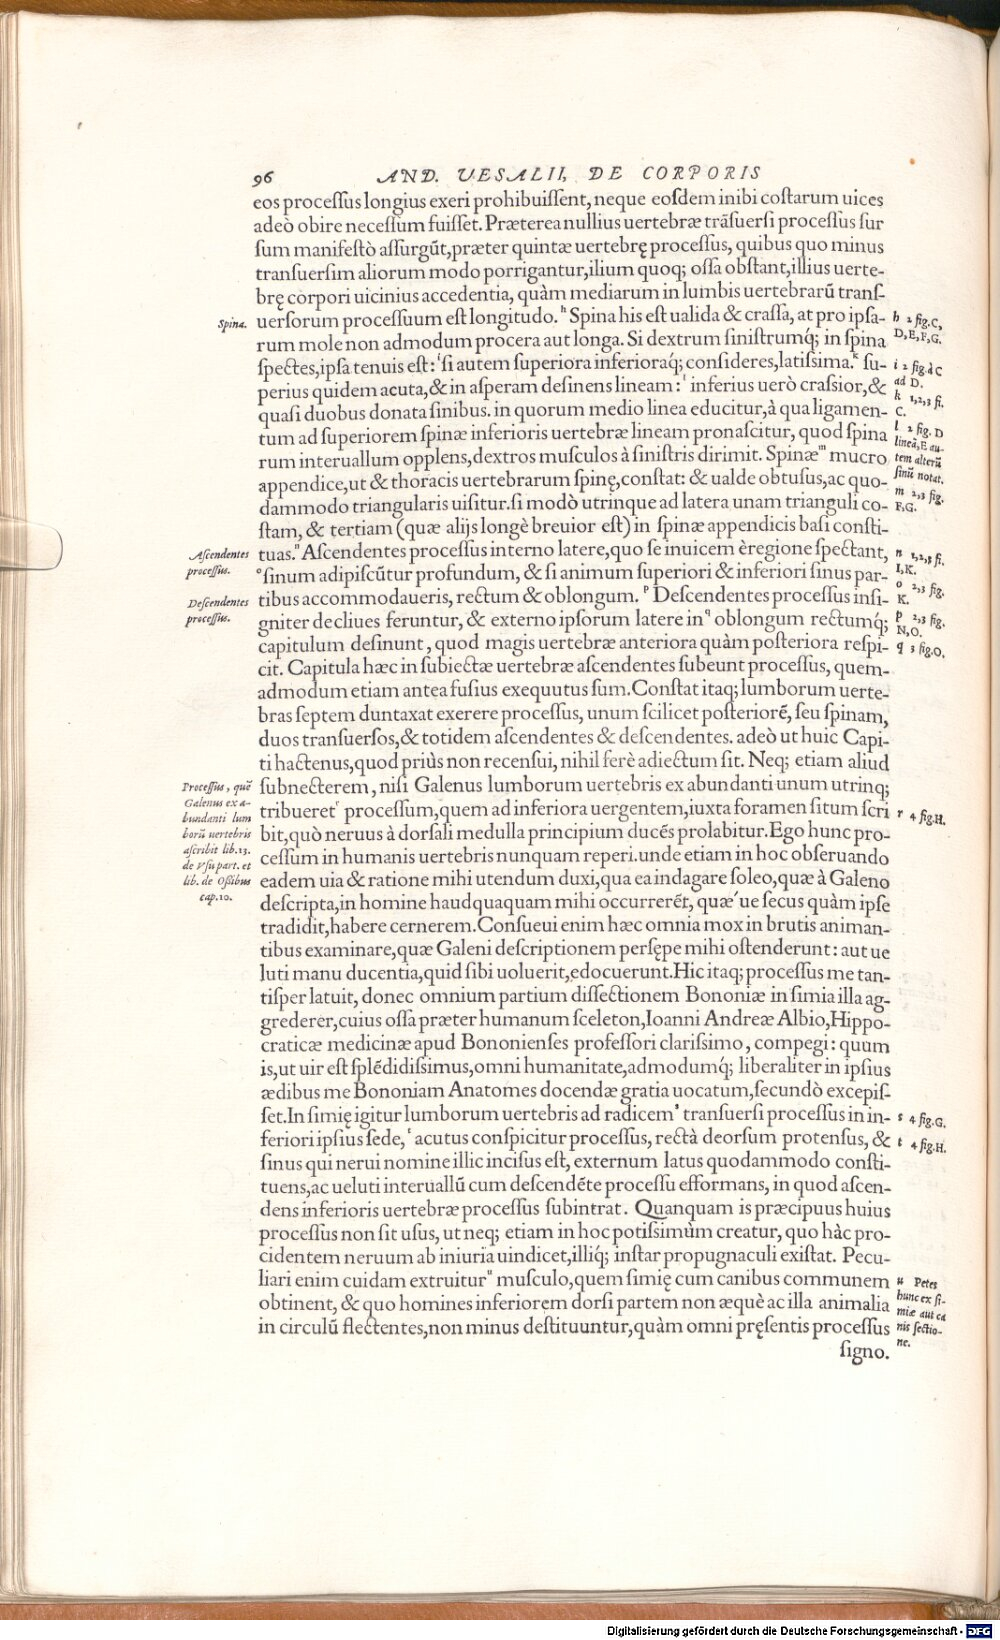 96 AND. VESALII, DE CORPORIS
eos processus longius exeri prohibuissent, neque eosdem inibi costarum uices
adeò obire necessum fuisset. Præterea nullius uertebræ trãsuersi processus sur
sum manifestò assurgũt, præter quintæ uertebrę processus, quibus quo minus
transuersim aliorum modo porrigantur, ilium quoq; ossa obstant, illius uerte-
brę corpori uicinius accedentia, quàm mediarum in lumbis uertebrarũ trans-
Spina.
uersorum processuum est longitudo. ʰ Spina his est ualida & crassa, at pro ipsa-
h 2 fig. C,
D, E, F, G.
rum mole non admodum procera aut longa. Si dextrum sinistrumq́; in spina
spectes, ipsa tenuis est: ⁱ si autem superiora inferioraq́; consideres, latissima. ᵏ su-
i 2 fig. à C
ad D.
perius quidem acuta, & in asperam desinens lineam: ˡ inferius uerò crassior, &
k 1,2,3 fi.
C.
quasi duobus donata sinibus. in quorum medio linea educitur, à qua ligamen-
l 2 fig. D
lineã, E au-
tem alterũ
sinũ notat.
tum ad superiorem spinæ inferioris uertebræ lineam pronascitur, quod spina
rum interuallum opplens, dextros musculos à sinistris dirimit. Spinæ ᵐ mucro
appendice, ut & thoracis uertebrarum spinę, constat: & ualde obtusus, ac quo-
m 2,3 fig.
F, G.
dammodo triangularis uisitur. si modò utrinque ad latera unam trianguli co-
stam, & tertiam (quæ alijs longè breuior est) in spinæ appendicis basi consti-
Ascendentes
processus.
tuas. ⁿ Ascendentes processus interno latere, quo se inuicem è regione spectant,
n 1,2,3 fi.
I, K.
ᵒ sinum adipiscũtur profundum, & si animum superiori & inferiori sinus par-
o 2,3 fig.
K.
Descendentes
processus.
tibus accommodaueris, rectum & oblongum. ᵖ Descendentes processus insi-
p 2,3 fig.
N, O.
gniter decliues feruntur, & externo ipsorum latere in q oblongum rectumq́;
capitulum desinunt, quod magis uertebræ anteriora quàm posteriora respi-
q 3 fig. O.
cit. Capitula hæc in subiectæ uertebræ ascendentes subeunt processus, quem-
admodum etiam antea fusius exequutus sum. Constat itaq; lumborum uerte-
bras septem duntaxat exerere processus, unum scilicet posteriorẽ, seu spinam,
duos transuersos, & totidem ascendentes & descendentes. adeò ut huic Capi-
ti hactenus, quod priùs non recensui, nihil ferè adiectum sit. Neq; etiam aliud
Processus, quẽ
Galenus ex a-
bundanti lum
borũ uertebris
ascribit lib. 13.
de Vsu part. et
lib. de Ossibus
cap. 10.
subnecterem, nisi Galenus lumborum uertebris ex abundanti unum utrinq;
tribueret ʳ processum, quem ad inferiora uergentem, iuxta foramen situm scri
r 4 fig. H.
bit, quò neruus à dorsali medulla principium ducẽs prolabitur. Ego hunc pro-
cessum in humanis uertebris nunquam reperi. unde etiam in hoc obseruando
eadem uia & ratione mihi utendum duxi, qua ea indagare soleo, quæ à Galeno
descripta, in homine haudquaquam mihi occurrerẽt, quæ´ue secus quàm ipse
tradidit, habere cernerem. Consueui enim hæc omnia mox in brutis animan-
tibus examinare, quæ Galeni descriptionem persępe mihi ostenderunt: aut ue
luti manu ducentia, quid sibi uoluerit, edocuerunt. Hic itaq; processus me tan-
tisper latuit, donec omnium partium dissectionem Bononiæ in simia illa ag-
grederer, cuius ossa præter humanum sceleton, Ioanni Andreæ Albio, Hippo-
craticæ medicinæ apud Bononienses professori clarissimo, compegi: quum
is, ut uir est splẽdidissimus, omni humanitate, admodumq́; liberaliter in ipsius
ædibus me Bononiam Anatomes docendæ gratia uocatum, secundò excepis-
set. In simię igitur lumborum uertebris ad radicem ˢ transuersi processus in in-
s 4 fig. G.
feriori ipsius sede, ᵗ acutus conspicitur processus, rectà deorsum protensus, &
t 4 fig. H.
sinus qui nerui nomine illic incisus est, externum latus quodammodo consti-
tuens, ac ueluti interuallũ cum descendẽte processu efformans, in quod ascen-
dens inferioris uertebræ processus subintrat. Quanquam is præcipuus huius
processus non sit usus, ut neq; etiam in hoc potissimùm creatur, quo hàc pro-
cidentem neruum ab iniuria uindicet, illiq́; instar propugnaculi existat. Pecu-
liari enim cuidam extruitur ᵘ musculo, quem simię cum canibus communem
u Petes
hunc ex si-
miæ aut ca
nis sectio-
ne.
obtinent, & quo homines inferiorem dorsi partem non æquè ac illa animalia
in circulũ flectentes, non minus destituuntur, quàm omni pręsentis processus
signo.
Digitalisierung gefördert durch die Deutsche Forschungsgemeinschaft - DFG